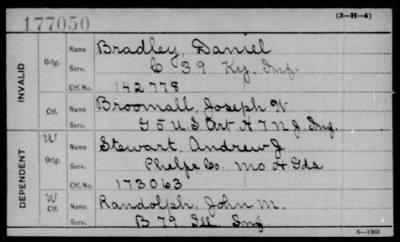 177050 (3-H-4)
INVALID Orig. Name Bradley, Daniel
Serv. C 39 Ky. Inf.
Ctf. No. 142778
Ctf. Name Broomall, Joseph W
Serv. G 5 U.S. Art. H 7 N J. Inf.
DEPENDENT W Orig. Name Stewart, Andrew J
Serv. Phelps Co. Mo H Gds
Ctf. No. 173063
W Ctf. Name Randolph, John M.
Serv. B 79 Ill Inf